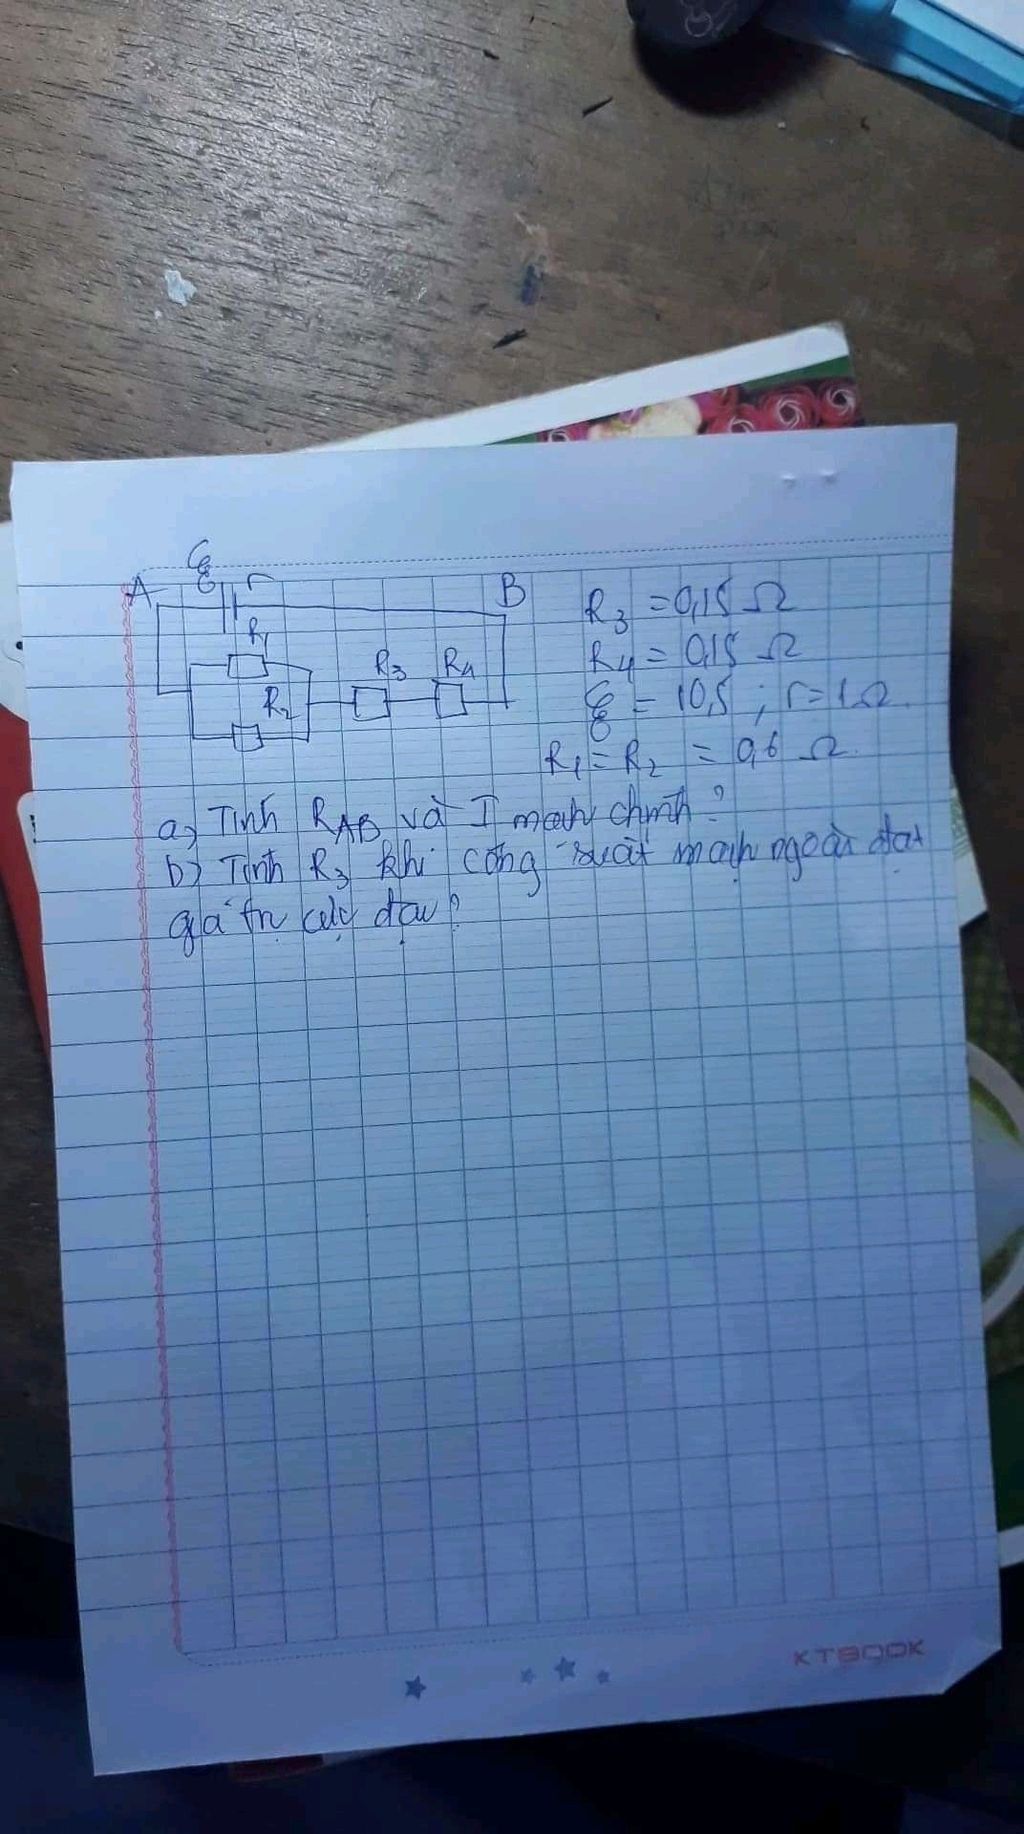 A ℰ r B
R1
R2
R3 R4
R3 = 0,15 Ω
R4 = 0,15 Ω
ℰ = 10,5 ; r = 1Ω.
R1 = R2 = 0,6 Ω.
a, Tính RAB và I mạch chính?
b) Tính R3 khi công suất mạch ngoài đạt
giá trị cực đại?
KTBOOK